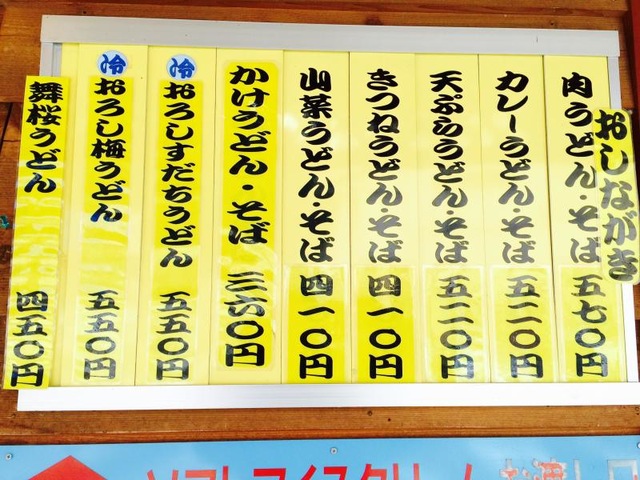 おしながき
肉うどん・そば 五七〇円
カレーうどん・そば 五二〇円
天ぷらうどん・そば 五二〇円
きつねうどん・そば 四一〇円
山菜うどん・そば 四一〇円
かけうどん・そば 三六〇円
冷 おろしすだちうどん 五五〇円
冷 おろし梅うどん 五五〇円
舞桜うどん 四五〇円
ソフトアイスクリーム